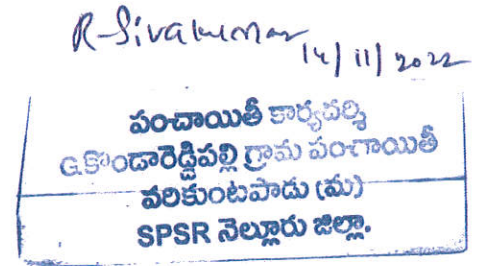 R-Sivakumar
14/11/2022
పంచాయితీ కార్యదర్శి
G.కొండారెడ్డిపల్లి గ్రామ పంచాయితీ
వరికుంటపాడు (మ)
SPSR నెల్లూరు జిల్లా.